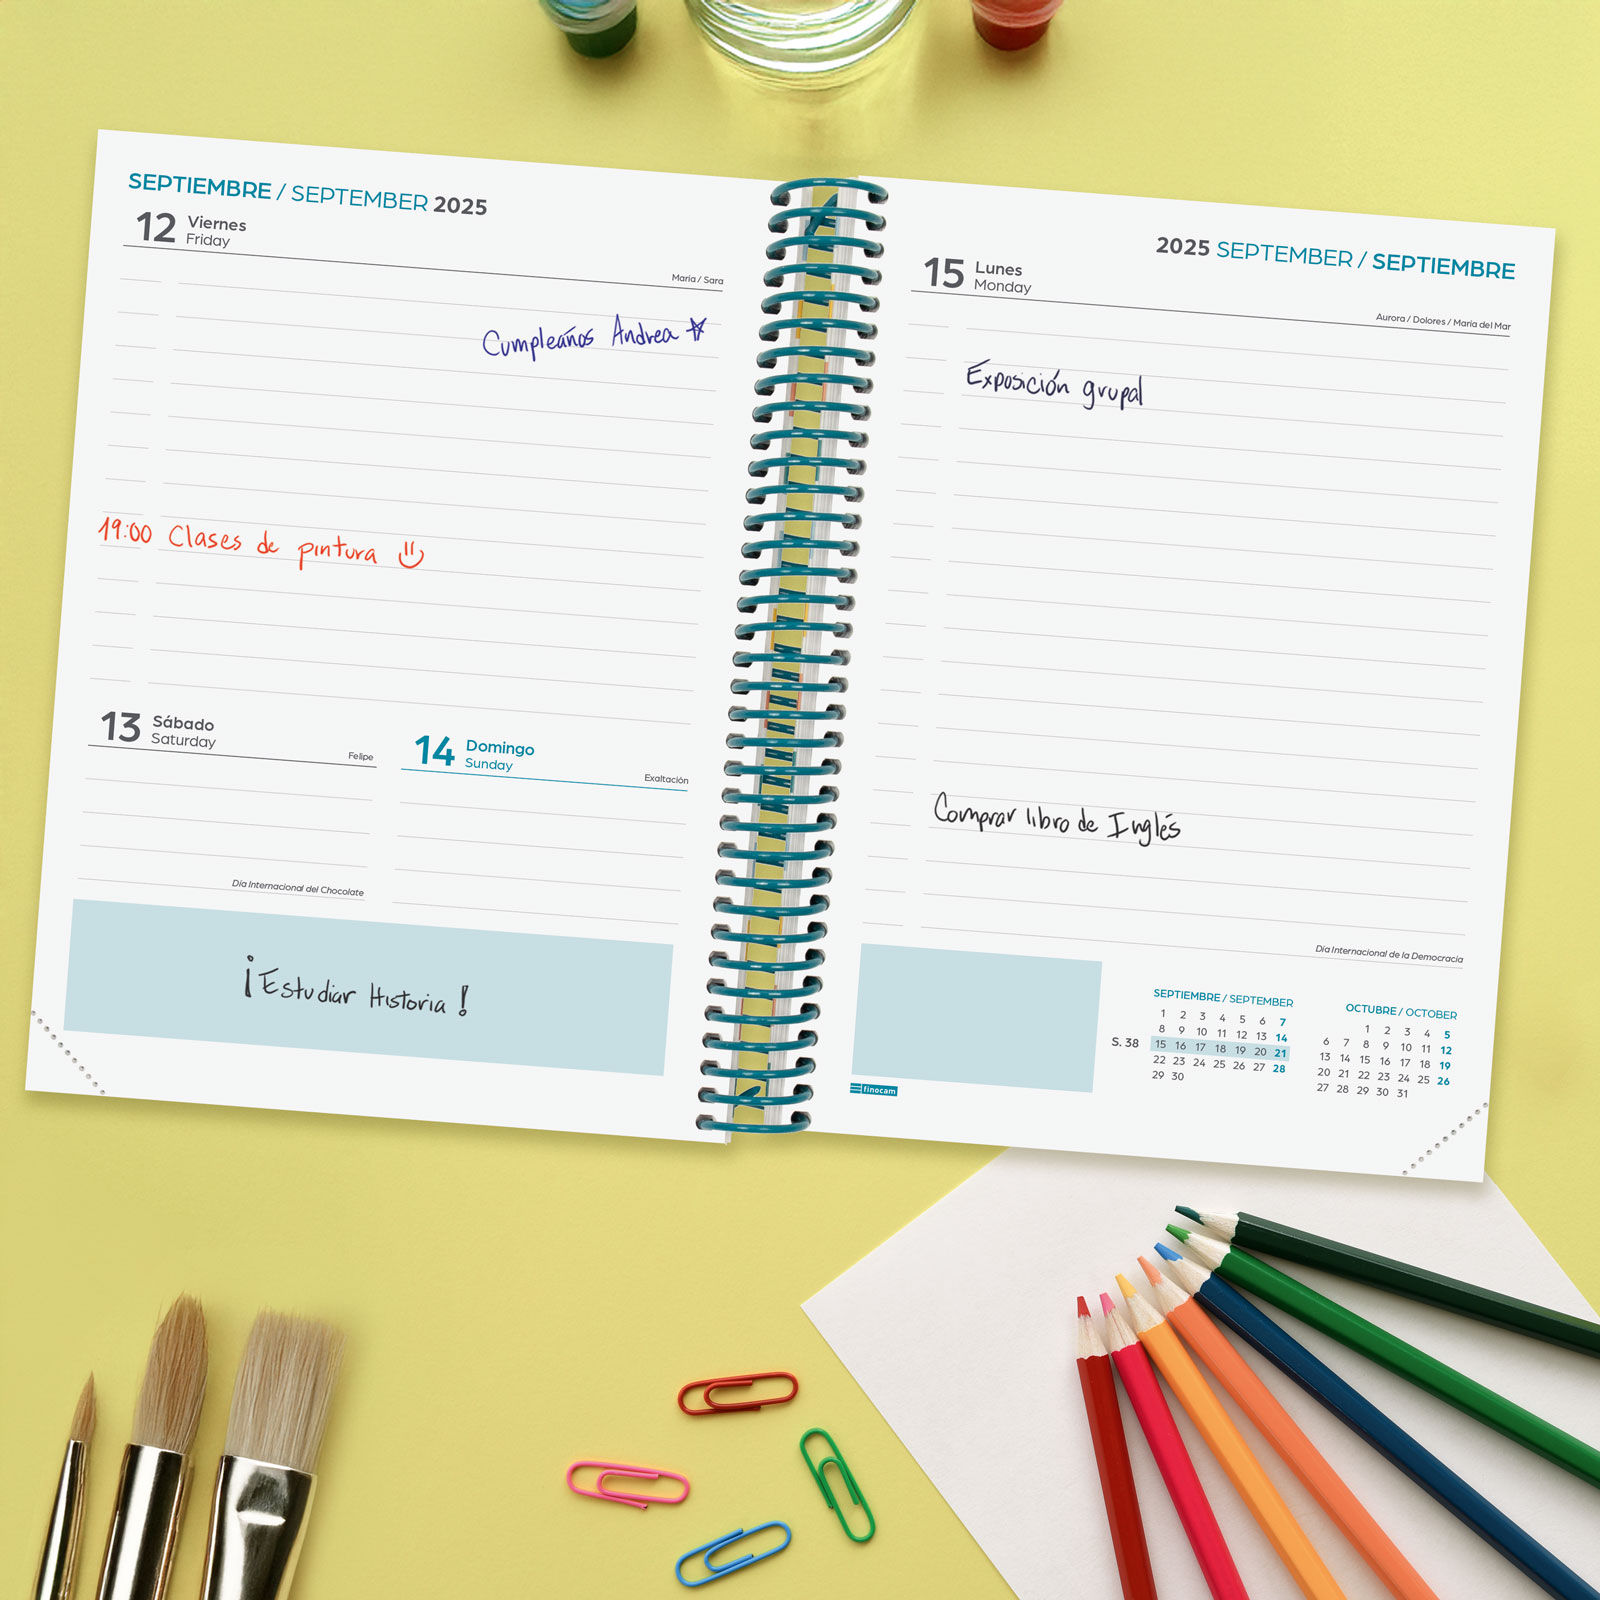 SEPTIEMBRE / SEPTEMBER 2025
12 Viernes
Friday
Maria / Sara
Cumpleaños Andrea
19:00 Clases de pintura
13 Sábado
Saturday
Felipe
14 Domingo
Sunday
Exaltación
Día Internacional del Chocolate
¡Estudiar Historia!
2025 SEPTEMBER / SEPTIEMBRE
15 Lunes
Monday
Aurora / Dolores / María del Mar
Exposición grupal
Comprar libro de Inglés
Día Internacional de la Democracia
finocam
SEPTIEMBRE / SEPTEMBER
1 2 3 4 5 6 7
8 9 10 11 12 13 14
S. 38 15 16 17 18 19 20 21
22 23 24 25 26 27 28
29 30
OCTUBRE / OCTOBER
1 2 3 4 5
6 7 8 9 10 11 12
13 14 15 16 17 18 19
20 21 22 23 24 25 26
27 28 29 30 31